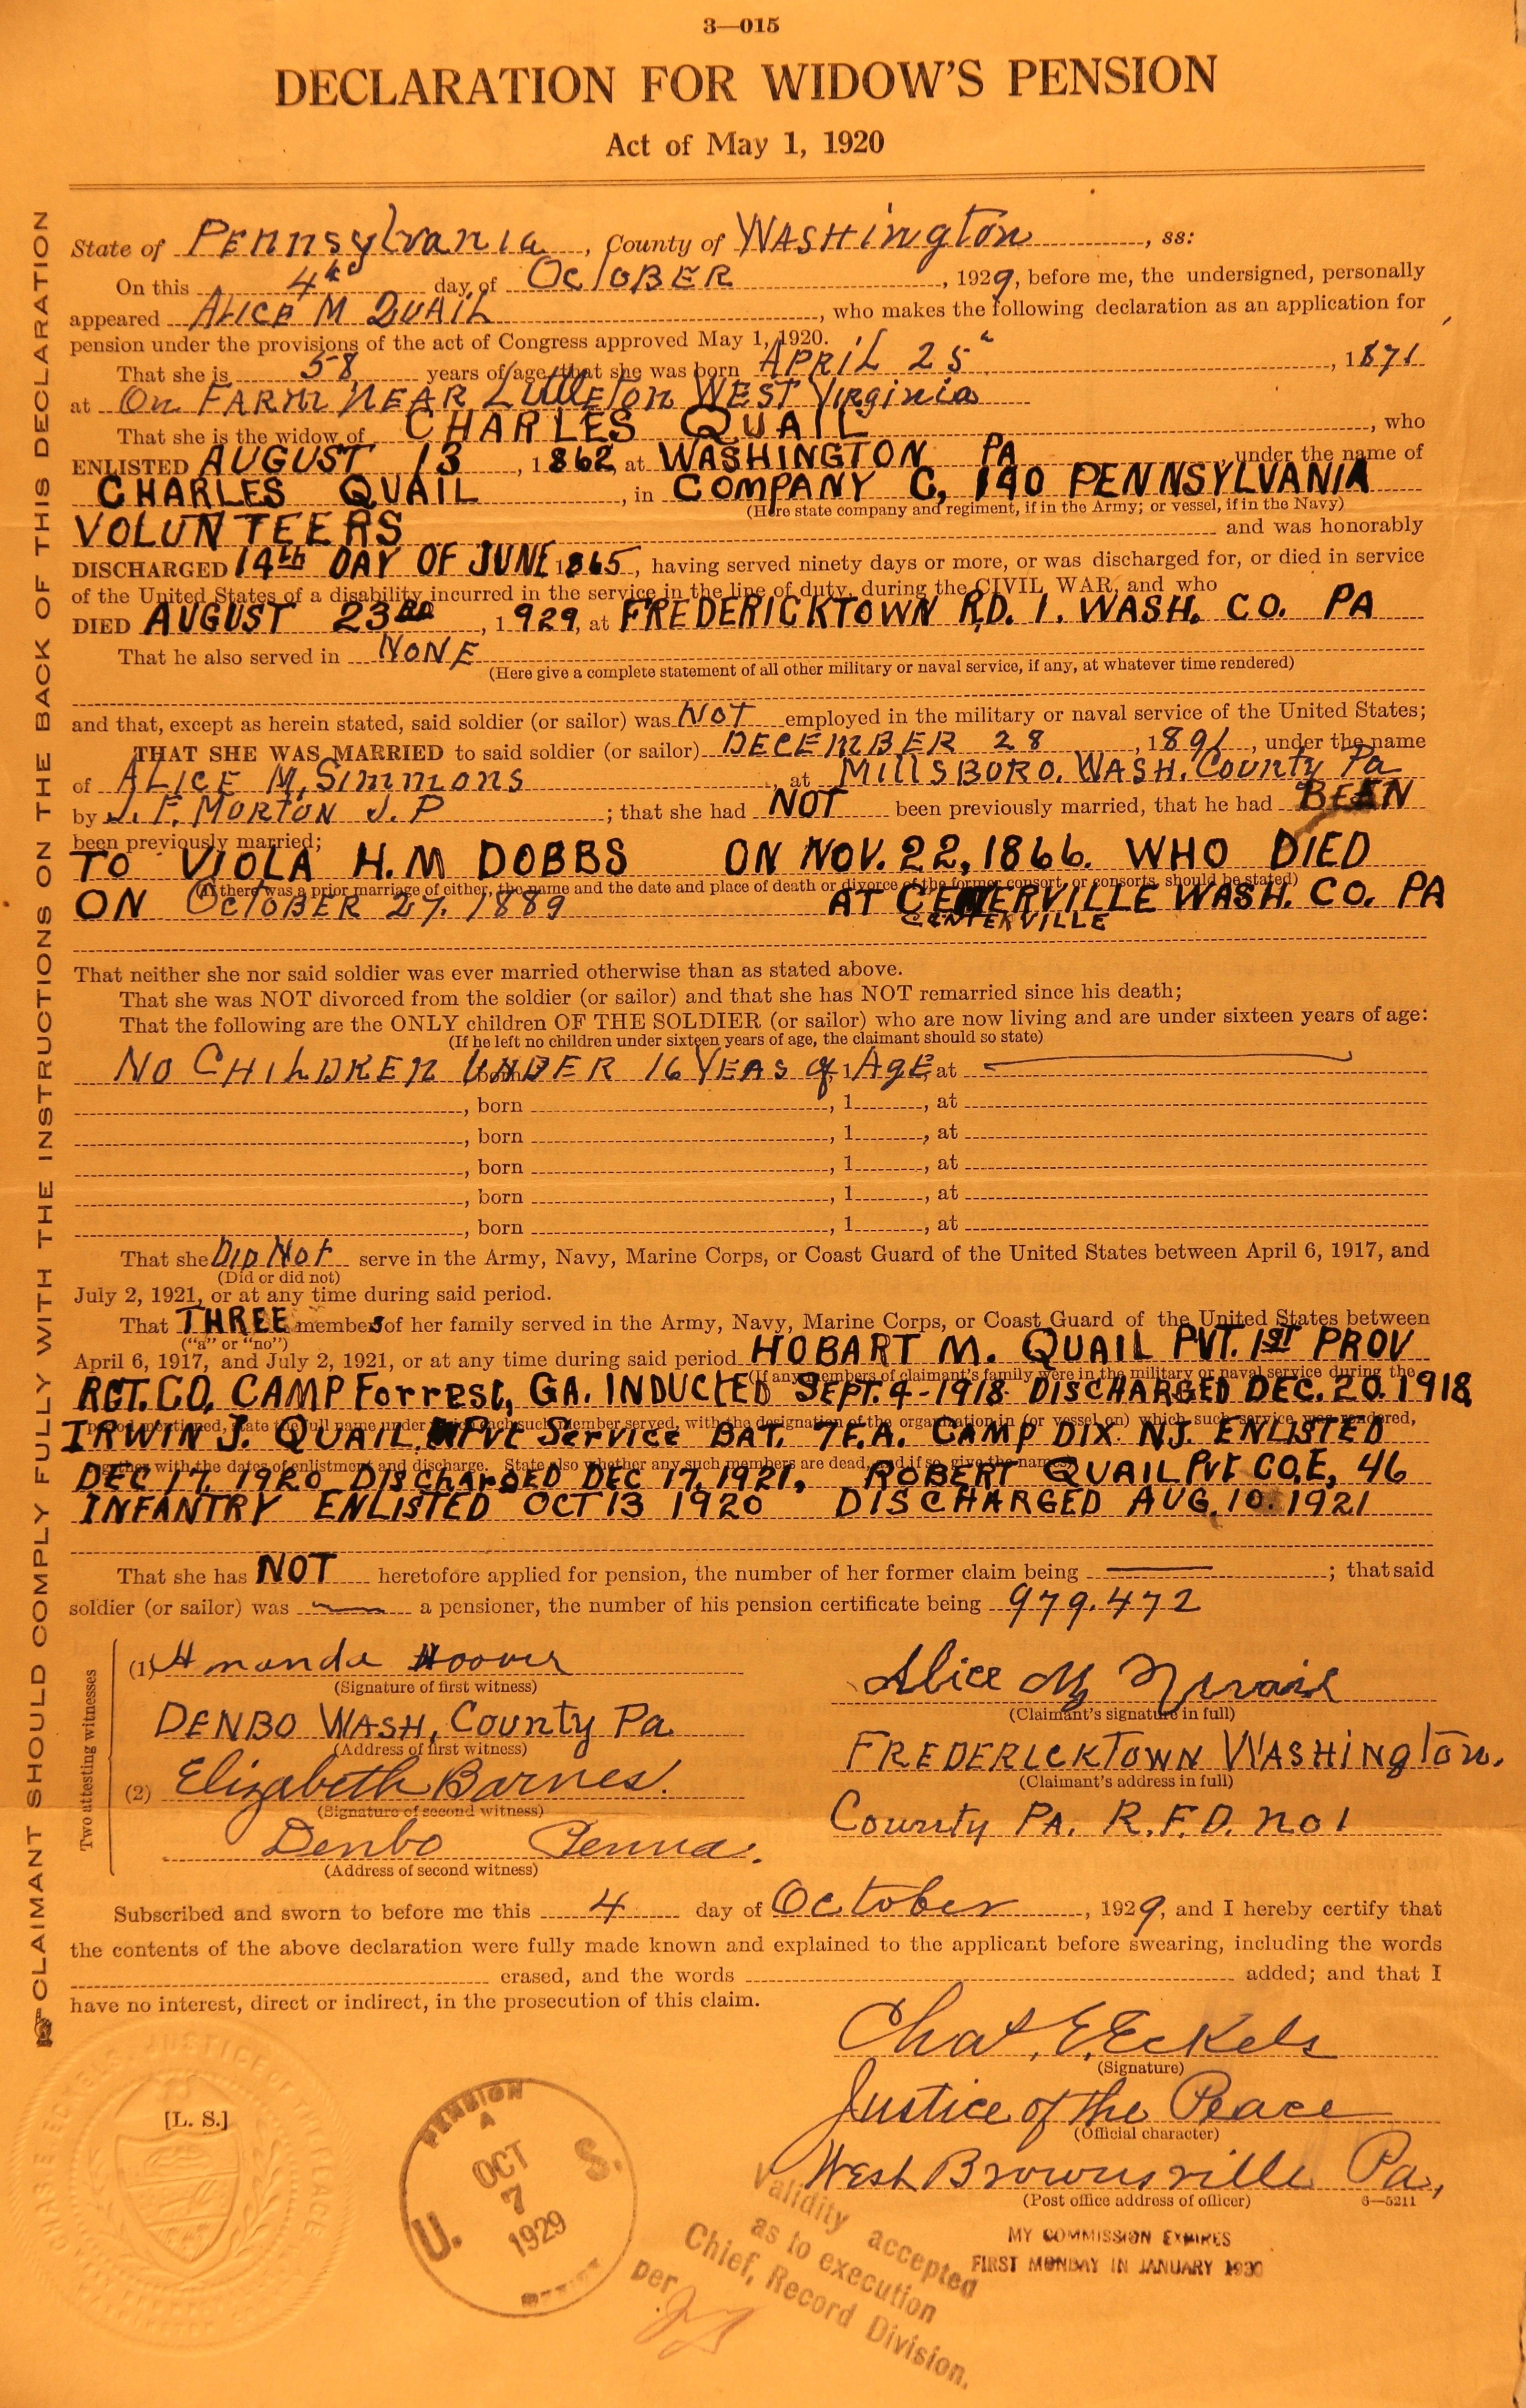 3—015
DECLARATION FOR WIDOW'S PENSION
Act of May 1, 1920
CLAIMANT SHOULD COMPLY FULLY WITH THE INSTRUCTIONS ON THE BACK OF THIS DECLARATION
State of Pennsylvania, County of WASHington, ss:
On this 4th day of OctOBER, 1929, before me, the undersigned, personally
appeared ALICE M QUAIL, who makes the following declaration as an application for
pension under the provisions of the act of Congress approved May 1, 1920.
That she is 58 years of age, that she was born APRIL 25", 1871
at On FARM NEAR Littleton WEST Virginia
That she is the widow of CHARLES QUAIL, who
ENLISTED AUGUST 13, 1862, at WASHINGTON PA under the name of
CHARLES QUAIL, in COMPANY C, 140 PENNSYLVANIA
(Here state company and regiment, if in the Army; or vessel, if in the Navy)
VOLUNTEERS and was honorably
DISCHARGED 14th DAY OF JUNE 1865, having served ninety days or more, or was discharged for, or died in service
of the United States of a disability incurred in the service in the line of duty, during the CIVIL WAR, and who
DIED AUGUST 23RD, 1929, at FREDERICKTOWN R.D. 1. WASH. CO. PA
That he also served in NONE
(Here give a complete statement of all other military or naval service, if any, at whatever time rendered)
and that, except as herein stated, said soldier (or sailor) was NOT employed in the military or naval service of the United States;
THAT SHE WAS MARRIED to said soldier (or sailor) DECEMBER 28, 1891, under the name
of ALICE M. Simmons, at MILLSBORO. WASH. County Pa
by J. F. MORTON J. P; that she had NOT been previously married, that he had BEEN
been previously married;
TO VIOLA H.M DOBBS ON NOV. 22, 1866. WHO DIED
(If there was a prior marriage of either, the name and the date and place of death or divorce of the former consort, or consorts, should be stated)
ON OctOBER 27. 1889 AT CENTERVILLE WASH. CO. PA
CENTERVILLE
That neither she nor said soldier was ever married otherwise than as stated above.
That she was NOT divorced from the soldier (or sailor) and that she has NOT remarried since his death;
That the following are the ONLY children OF THE SOLDIER (or sailor) who are now living and are under sixteen years of age:
(If he left no children under sixteen years of age, the claimant should so state)
NO CHILDREN UNDER 16 YEAS of AgE, born, 1, at
, born, 1, at
, born, 1, at
, born, 1, at
, born, 1, at
, born, 1, at
That she DID NOT serve in the Army, Navy, Marine Corps, or Coast Guard of the United States between April 6, 1917, and
(Did or did not)
July 2, 1921, or at any time during said period.
That THREE members of her family served in the Army, Navy, Marine Corps, or Coast Guard of the United States between
("a" or "no")
April 6, 1917, and July 2, 1921, or at any time during said period HOBART M. QUAIL PVT. 1ST PROV
(If any members of claimant's family were in the military or naval service during the
RGT. CO, CAMP Forrest, GA. INDUCTED SEPT. 4-1918 DISCHARGED DEC. 20. 1918
period mentioned, state the full name under which each such member served, with the designation of the organization in (or vessel on) which such service was rendered,
IRWIN J. QUAIL. Pvt Service BAT. 7 F.A. CAMP DIX NJ. ENLISTED
together with the dates of enlistment and discharge. State also whether any such members are dead, and if so, give the names)
DEC 17, 1920 DISCHARGED DEC 17, 1921, ROBERT QUAIL Pvt CO, E, 46
INFANTRY ENLISTED OCT 13 1920 DISCHARGED AUG. 10. 1921
That she has NOT heretofore applied for pension, the number of her former claim being ; that said
soldier (or sailor) was a pensioner, the number of his pension certificate being 979.472
Two attesting witnesses
(1) Amanda Hoover
(Signature of first witness)
DENBO WASH, County Pa
(Address of first witness)
(2) Elizabeth Barnes.
(Signature of second witness)
Denbo Penna.
(Address of second witness)
Alice M Quail
(Claimant's signature in full)
FREDERICKTOWN WASHington.
(Claimant's address in full)
County PA. R.F.D. no 1
Subscribed and sworn to before me this 4 day of October, 1929, and I hereby certify that
the contents of the above declaration were fully made known and explained to the applicant before swearing, including the words
erased, and the words added; and that I
have no interest, direct or indirect, in the prosecution of this claim.
Chas. E. Eckels
(Signature)
Justice of the Peace
(Official character)
West Brownsville Pa,
(Post office address of officer)
6—5211
MY COMMISSION EXPIRES
FIRST MONDAY IN JANUARY 1930
[L. S.]
U. S. PENSION
OCT
7
1929
Validity accepted
as to execution
Chief, Record Division.
per